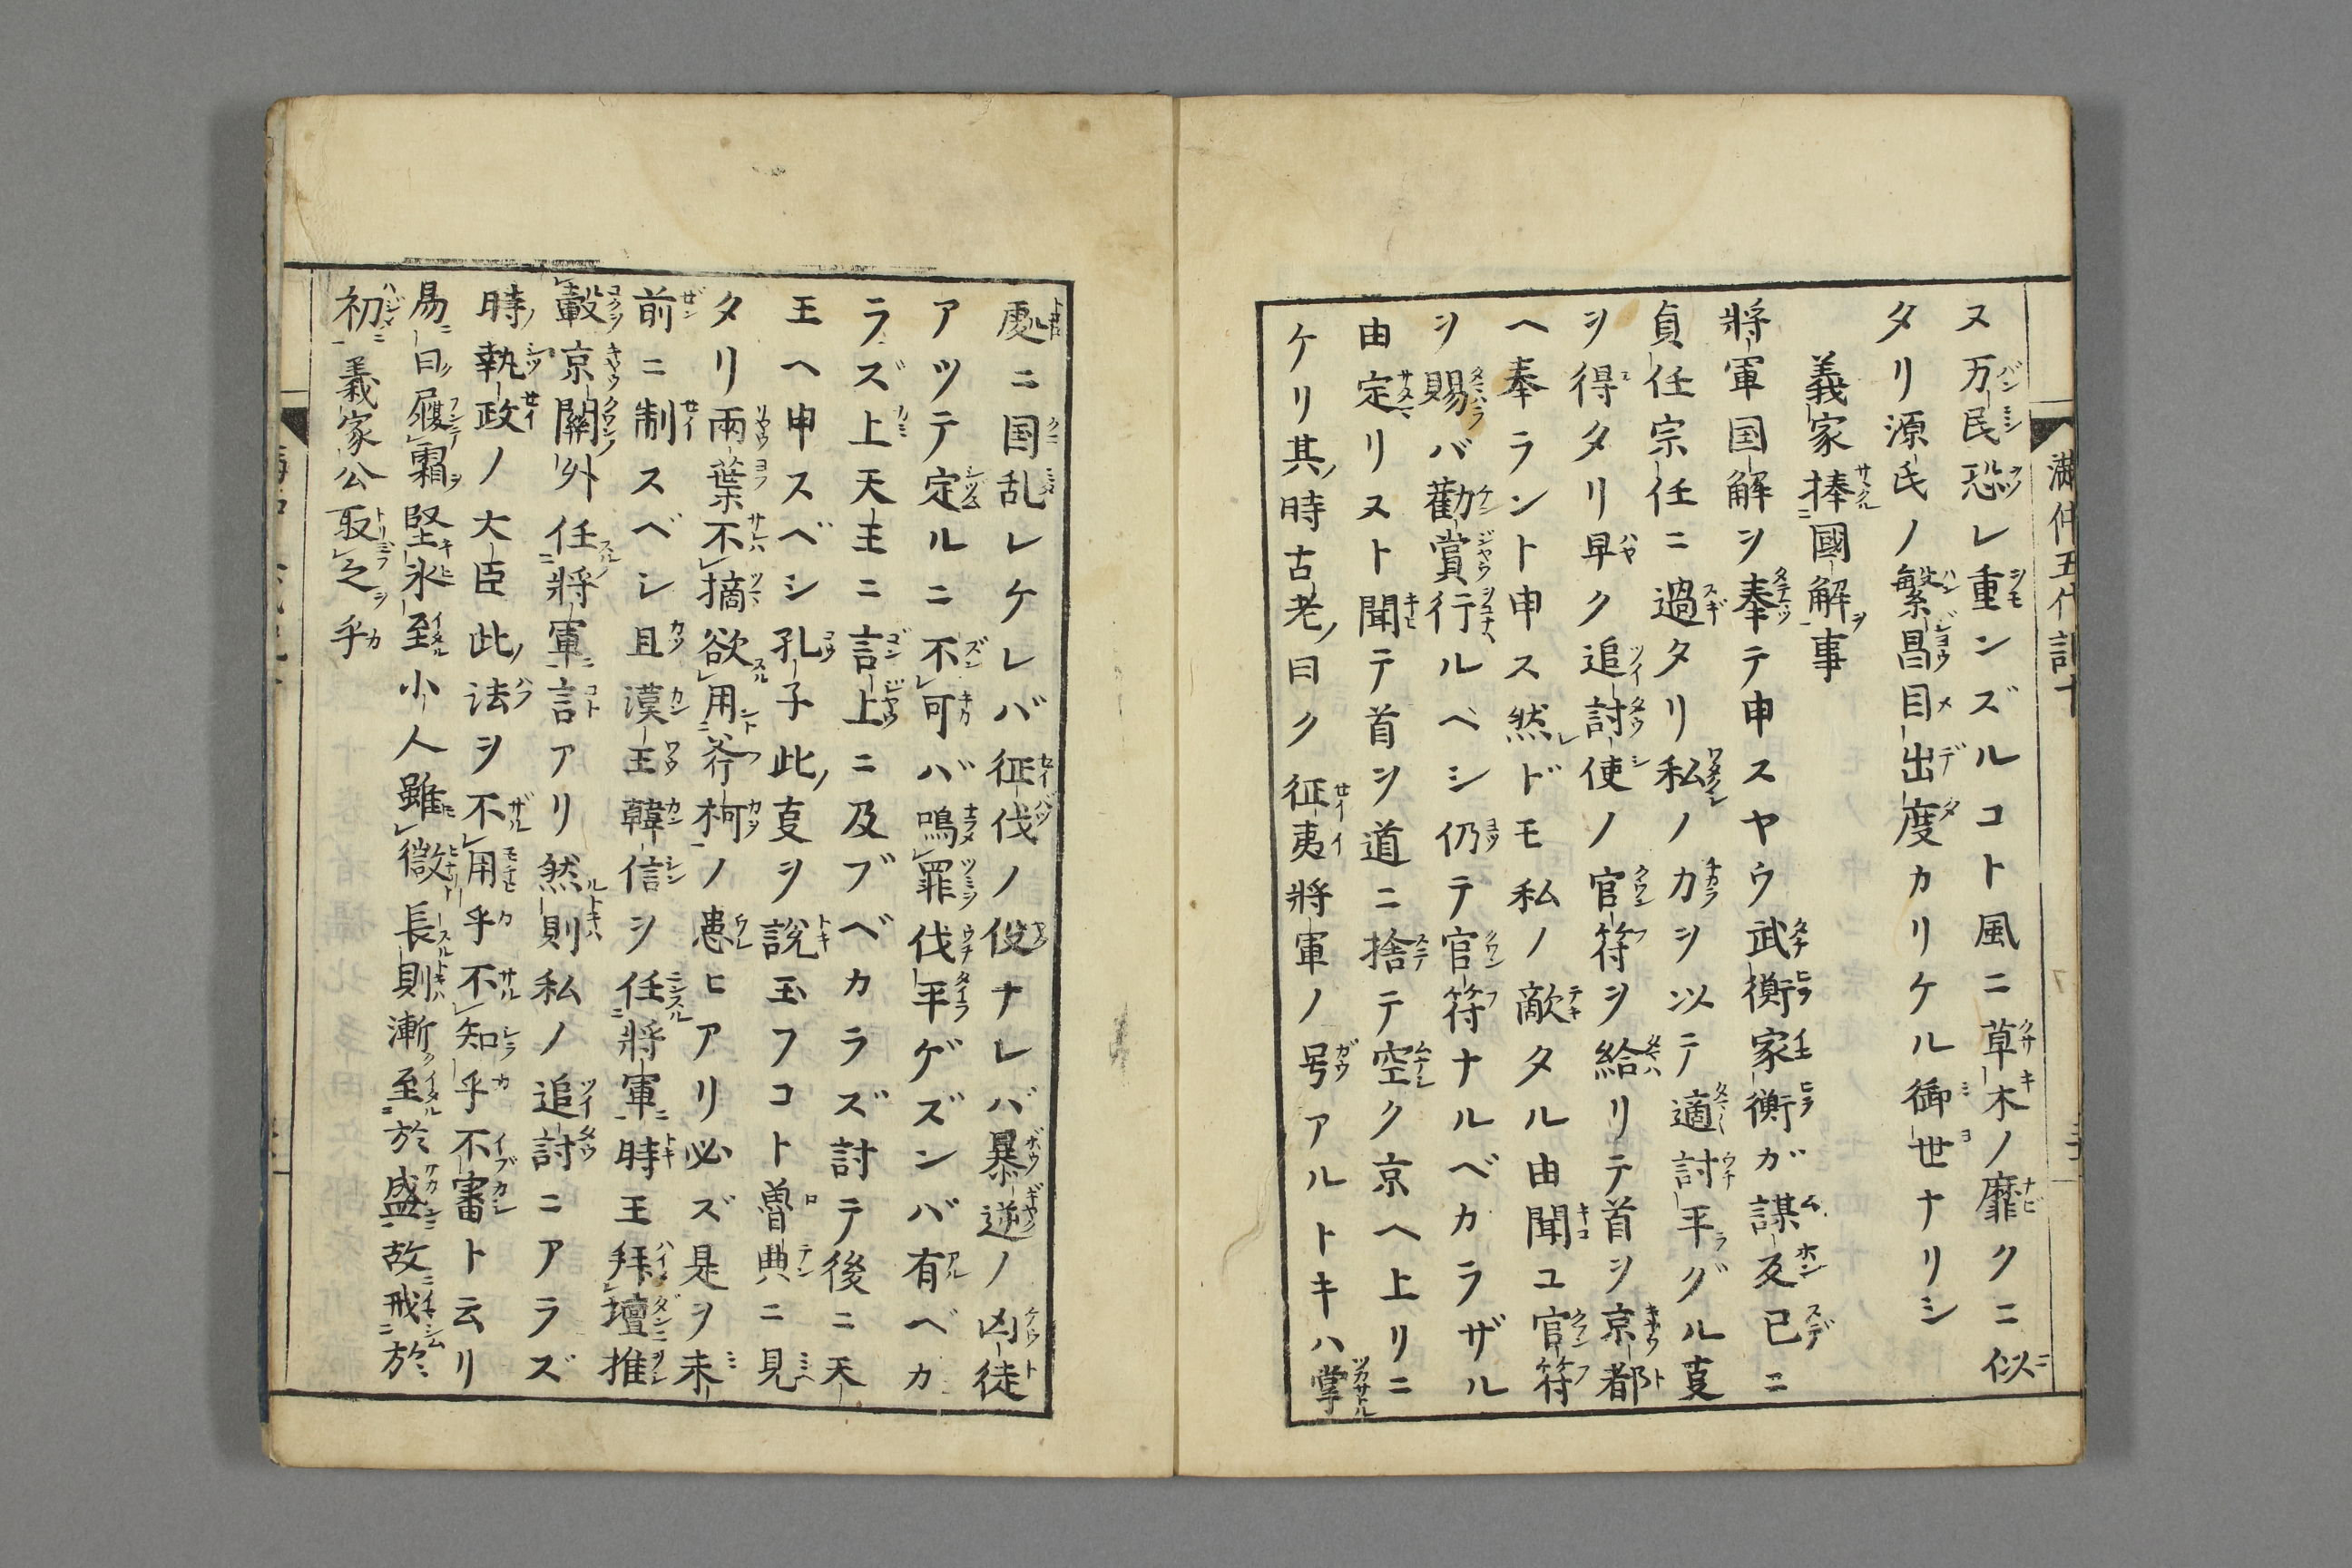 ヌ万民恐レ重ンズルコト風ニ草木ノ靡クニ似
タリ源氏ノ繁昌目出度カリケル御世ナリシ
義家捧國解事
將軍国解ヲ奉テ申スヤウ武衡家衡ガ謀反已ニ
貞任宗任ニ過タリ私ノカヲ以テ適討平グル叓
ヲ得タリ早ク追討使ノ官符ヲ給リテ首ヲ京都
ヘ奉ラント申ス然ドモ私ノ敵タル由聞ユ官符
ヲ賜バ勸賞行ルベシ仍テ官符ナルベカラザル
由定リヌト聞テ首ヲ道ニ捨テ空ク京ヘ上リニ
ケリ其時古老ノ曰ク征夷將軍ノ号アルトキハ掌
處ニ国乱レケレバ征伐ノ役ナレバ暴逆ノ凶徒
アツテ定ルニ不可バ鳴罪伐平ゲズンバ有ベカ
ラズ上天主ニ言上ニ及ブベカラズ討テ後ニ天
王ヘ申スベシ孔子此叓ヲ說玉フコト魯典ニ見
タリ兩葉不摘欲用斧柯ノ患ヒアリ必ズ是ヲ未
前ニ制スベシ且漢王韓信ヲ任將軍時王拜壇推
轂京關外任將軍言アリ然則私ノ追討ニアラズ
時執政ノ大臣此法ヲ不用乎不知乎不審ト云リ
易曰履霜堅氷至小人雖微長則漸至於盛故戒於
初義家公取之乎
滿仲五代記十